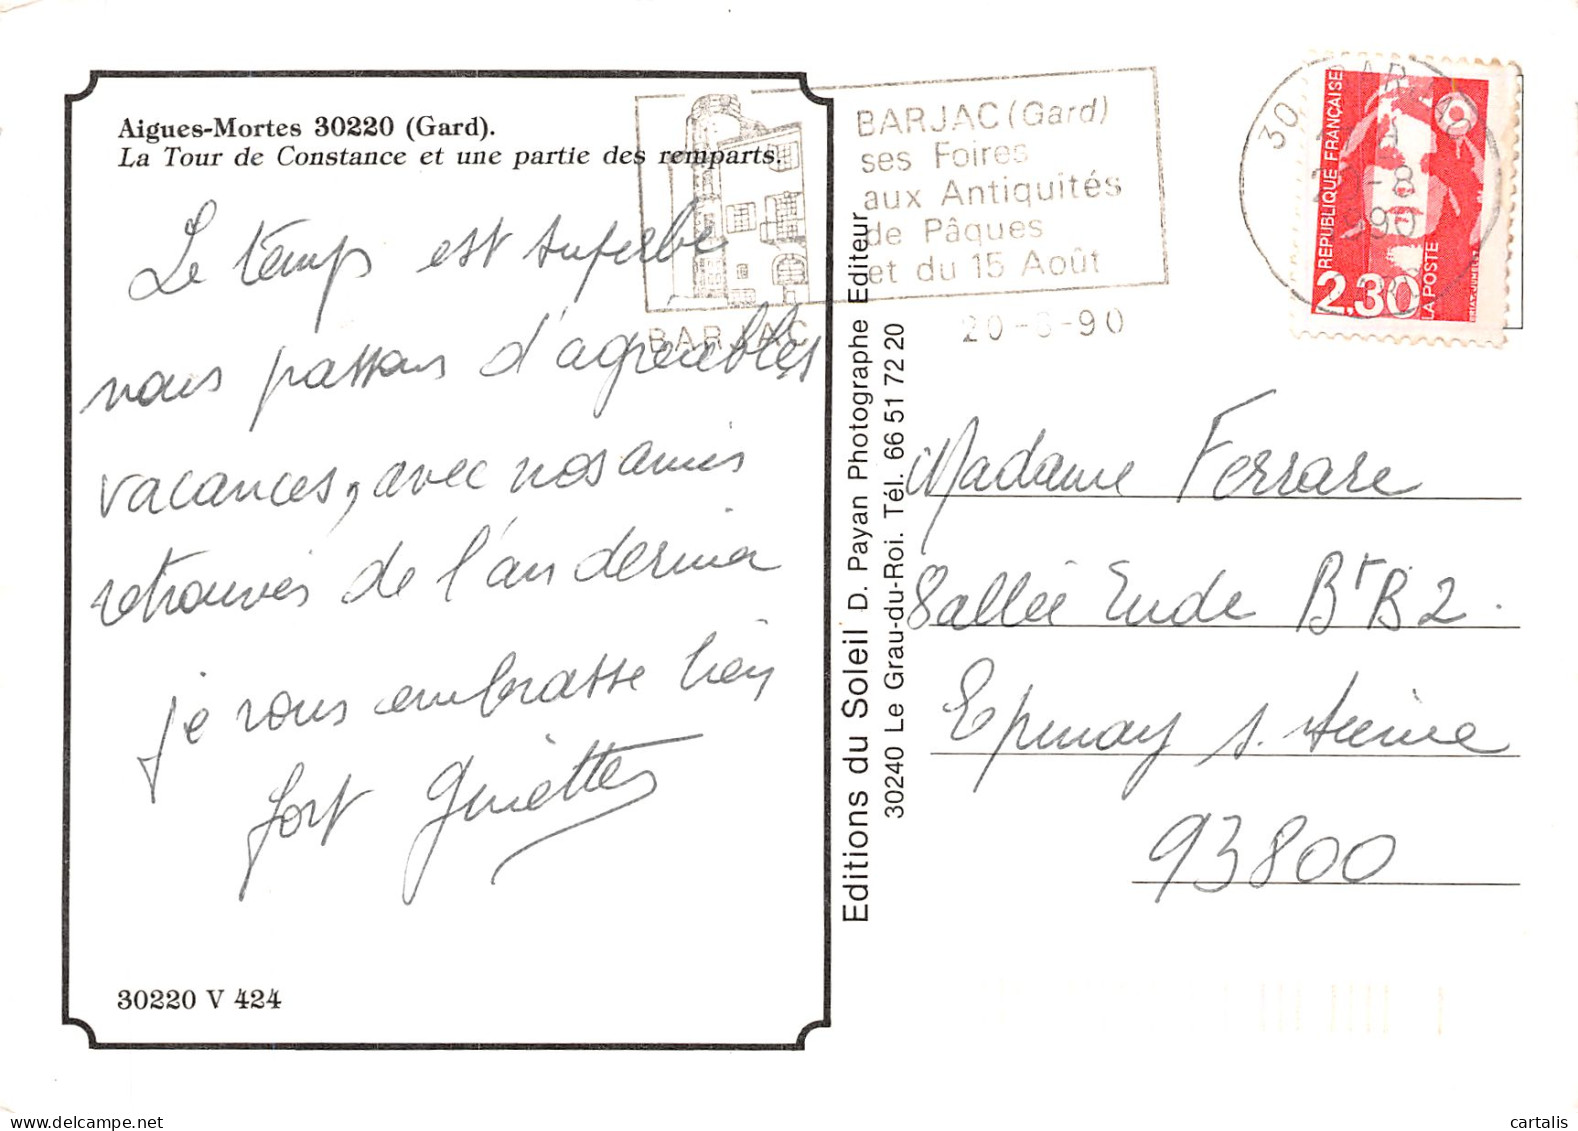 Aigues-Mortes 30220 (Gard).
La Tour de Constance et une partie des remparts.
Le temps est superbe
nous passons d'agréables
vacances, avec nos amis
retrouvés de l'an dernier
je vous embrasse bien
fort Ginette
30220 V 424
BARJAC
BARJAC (Gard)
ses Foires
aux Antiquités
de Pâques
et du 15 Août
20-8-90
Editions du Soleil D. Payan Photographe Editeur
30240 Le Grau-du-Roi. Tél. 66 51 72 20
30
REPUBLIQUE FRANÇAISE
2,30
LA POSTE
Madame Ferrare
Bt B2.
Epinay s. seine
93800
cartalis